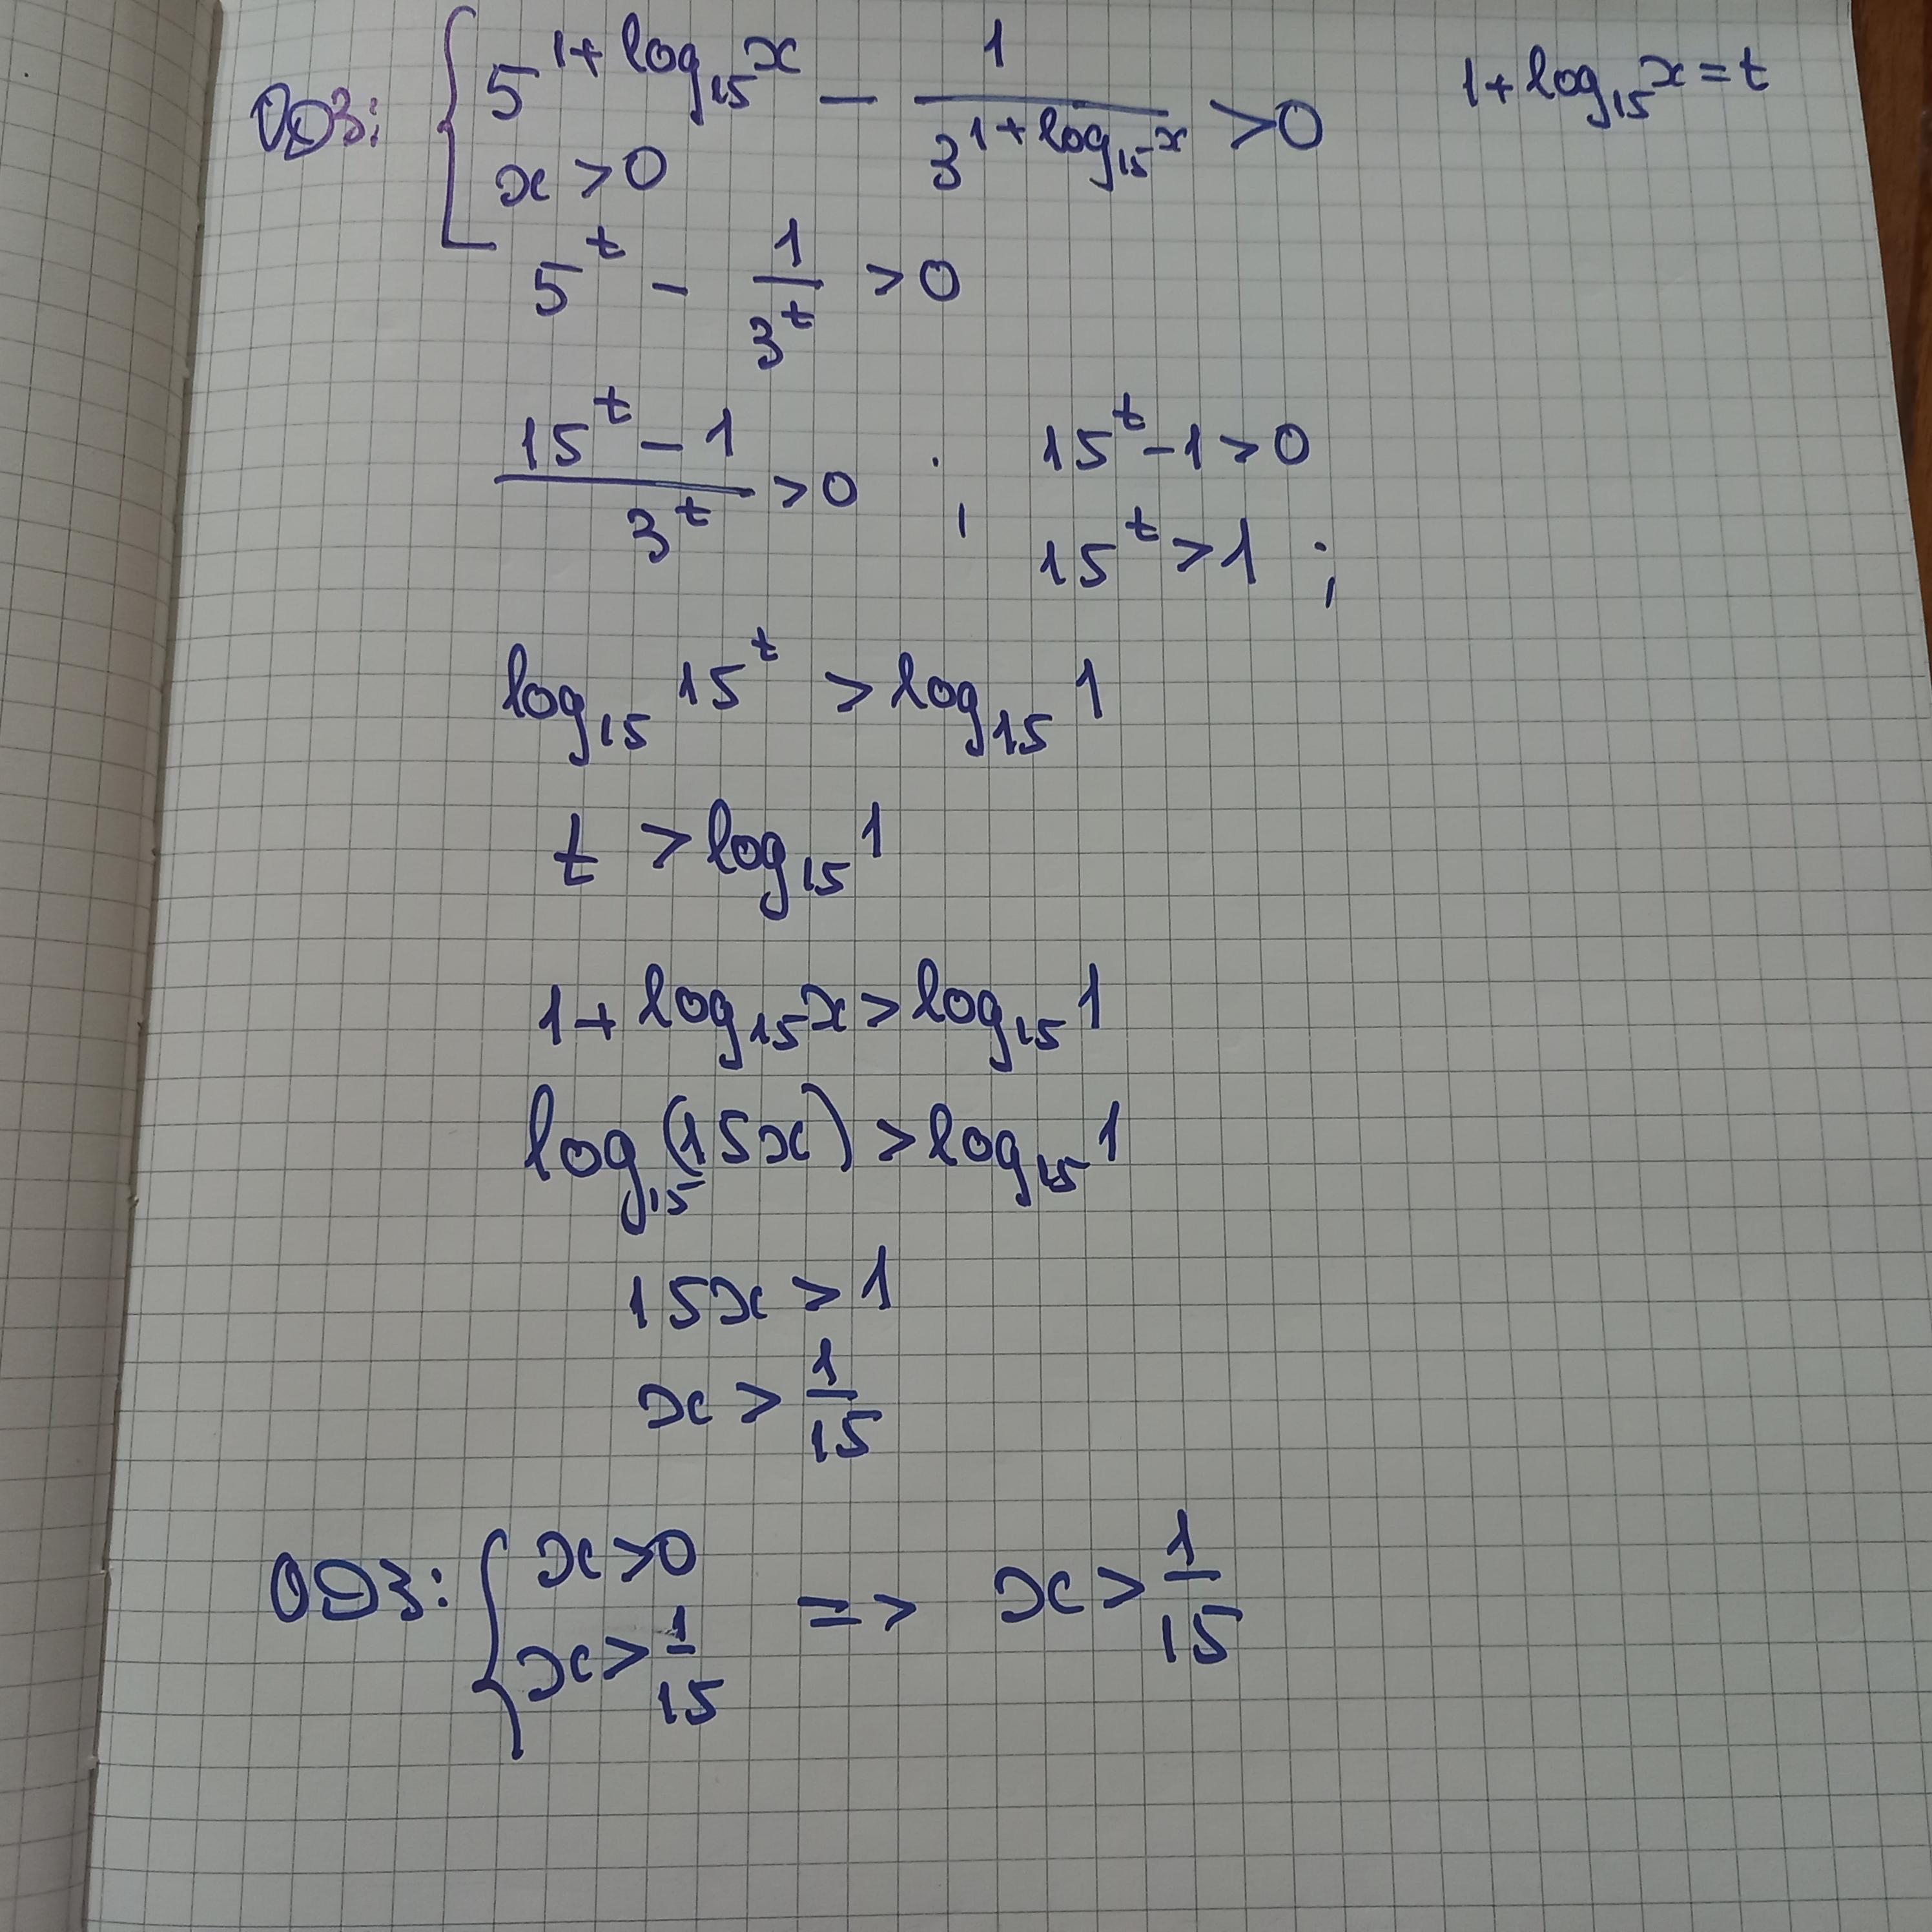 ОДЗ: { 5^(1+log₁₅x) − 1/3^(1+log₁₅x) > 0    1+log₁₅x = t
x > 0
5^t − 1/3^t > 0
(15^t − 1)/3^t > 0 ; 15^t − 1 > 0
15^t > 1 ;
log₁₅ 15^t > log₁₅ 1
t > log₁₅ 1
1 + log₁₅ x > log₁₅ 1
log₁₅ (15x) > log₁₅ 1
15x > 1
x > 1/15
ОДЗ: { x > 0
x > 1/15 => x > 1/15